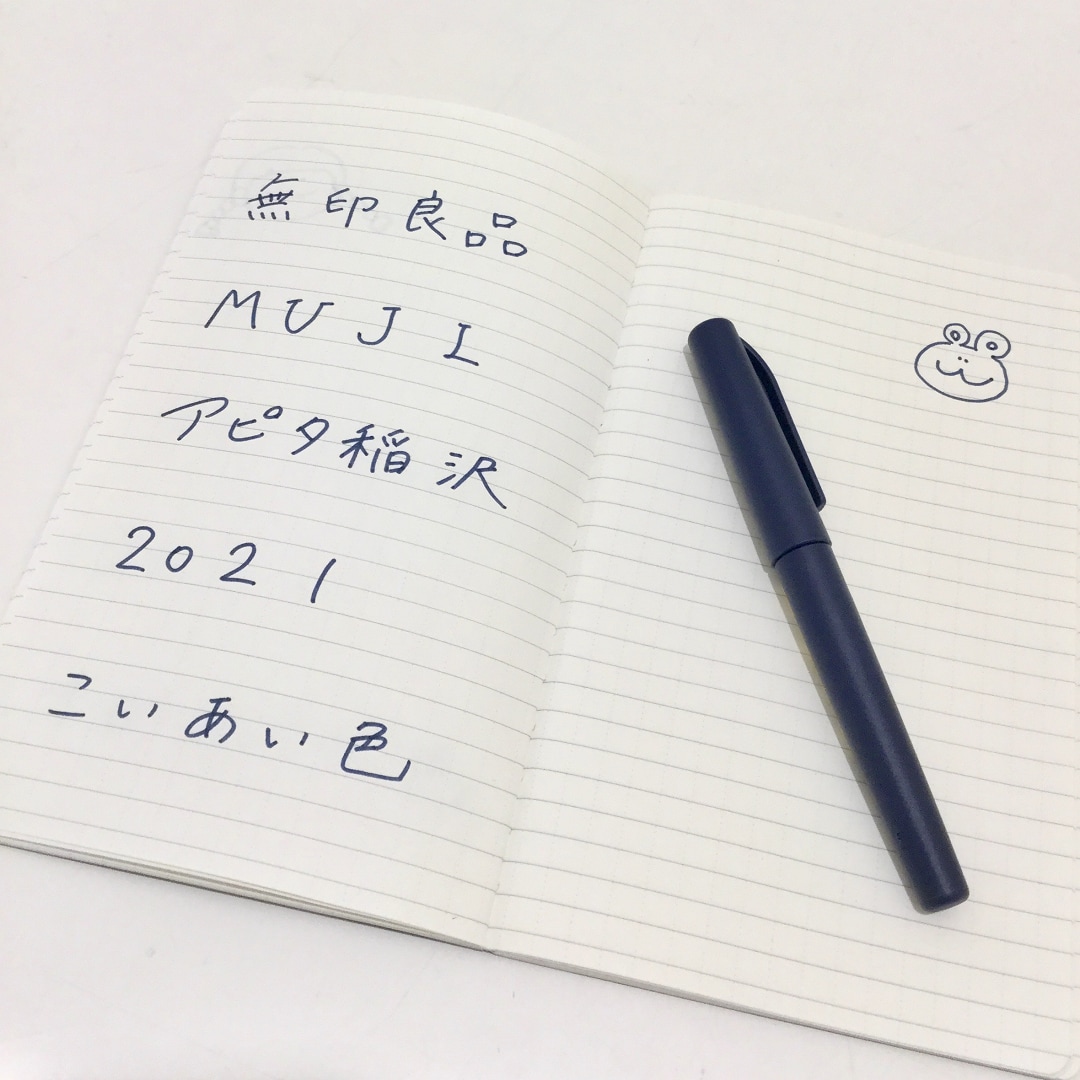 無印良品
MUJI
アピタ稲沢
2021
こいあい色